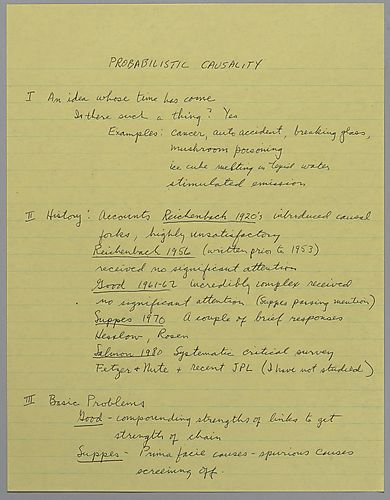 PROBABILISTIC CAUSALITY
I An idea whose time has come
Is there such a thing? Yes
Examples: cancer, auto accident, breaking glass,
mushroom poisoning
ice cube melting in tepid water
stimulated emission
II History: Accounts Reichenbach 1920's introduced causal
forks, highly unsatisfactory
Reichenbach 1956 (written prior to 1953)
received no significant attention
Good 1961-62 incredibly complex received
no significant attention (Suppes passing mention)
Suppes 1970 A couple of brief responses
Hesslow, Rosen
Salmon 1980 Systematic critical survey
Fetzer + Nute + recent JPL (I have not studied)
III Basic Problems
Good - compounding strengths of links to get
strength of chain
Suppes - Prima facie causes - spurious causes
screening off.